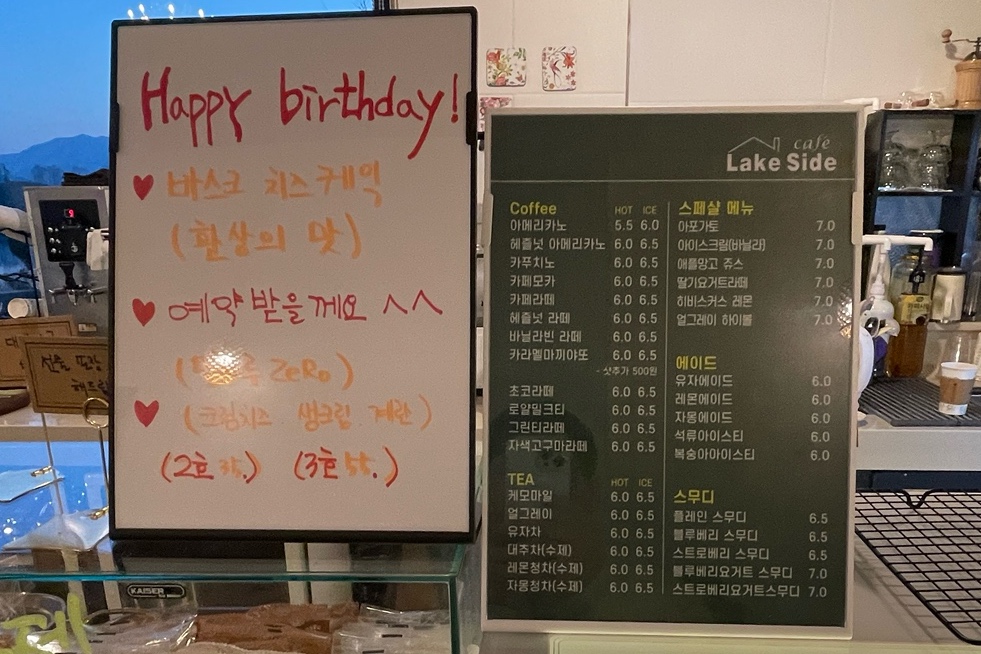 Happy birthday!
♥ 바스크 치즈케익
(환상의 맛)
♥ 예약 받을께요 ^^
ZeRo)
♥ (크림치즈 생크림 계란)
(2호 35.) (3호 55.)
선물 포장
KAISER
cafe
Lake Side
Coffee HOT ICE
아메리카노 5.5 6.0
헤즐넛 아메리카노 6.0 6.5
카푸치노 6.0 6.5
카페모카 6.0 6.5
카페라떼 6.0 6.5
헤즐넛 라떼 6.0 6.5
바닐라빈 라떼 6.0 6.5
카라멜마끼야또 6.0 6.5
- 샷추가 500원
초코라떼 6.0 6.5
로얄밀크티 6.0 6.5
그린티라떼 6.0 6.5
자색고구마라떼 6.0 6.5
TEA HOT ICE
케모마일 6.0 6.5
얼그레이 6.0 6.5
유자차 6.0 6.5
대추차(수제) 6.0 6.5
레몬청차(수제) 6.0 6.5
자몽청차(수제) 6.0 6.5
스페샬 메뉴
아포가토 7.0
아이스크림(바닐라) 7.0
애플망고 쥬스 7.0
딸기요거트라떼 7.0
히비스커스 레몬 7.0
얼그레이 하이볼 7.0
에이드
유자에이드 6.0
레몬에이드 6.0
자몽에이드 6.0
석류아이스티 6.0
복숭아아이스티 6.0
스무디
플레인 스무디 6.5
블루베리 스무디 6.5
스트로베리 스무디 6.5
블루베리요거트 스무디 7.0
스트로베리요거트스무디 7.0